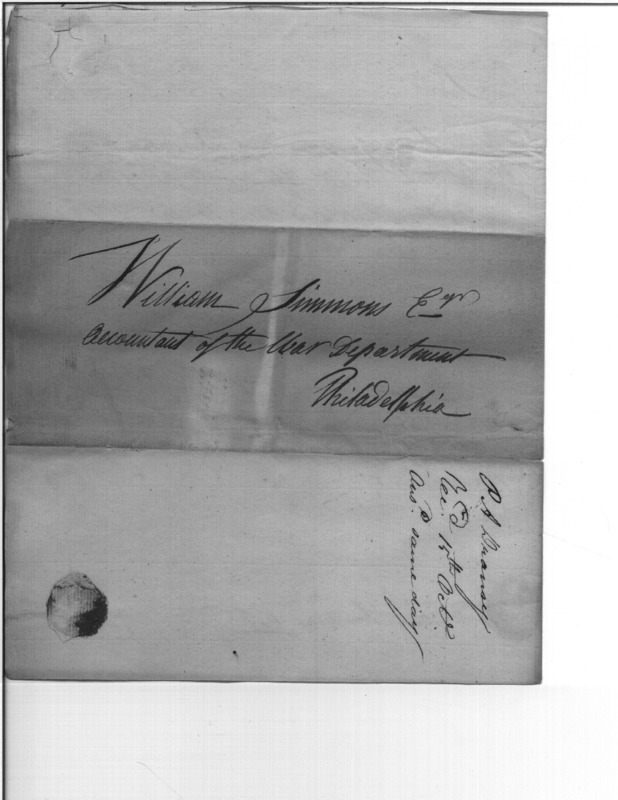 William Simmons Esqr
Accountant of the War Department
Philadelphia
P A
Recd. 15th Octr
Ansd. same day